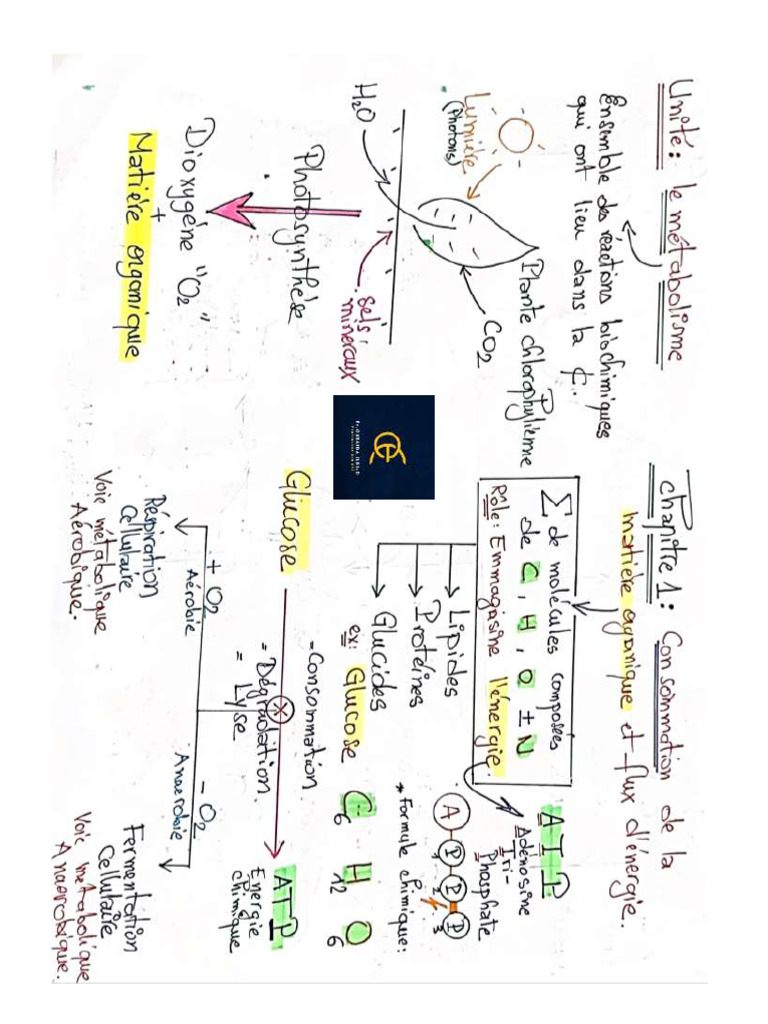 Unité: le métabolisme
Ensemble des réactions biochimiques
qui ont lieu dans la ¢..
Lumière
(Photons)
Plante chlorophylienne
CO2
H2O
sels
mineraux
Photosynthèse
Dioxygéne "O2"
+
Matière organique
Chapitre 1: Consommation de la
matière oganique et flux d'énergie.
Σ de molécules composées
de C, H, O ± N
Rôle: Emmagasine l'énergie.
ATP
Adénosine
Tri-
Phosphate
A P P P
1 2 3
Lipides
Protéines
Glucides
* Formule chimique:
ex: Glucose C6 H12 O6
Glucose
= Consommation.
= Dégradation.
= Lyse
ATP
Energie
chimique
+ O2
Aérobie
- O2
Anaerobie
Réspiration
Cellulaire
Voie métabolique
Aérobique.
Fermentation
Cellulaire
Voie métabolique
Anaérobique.